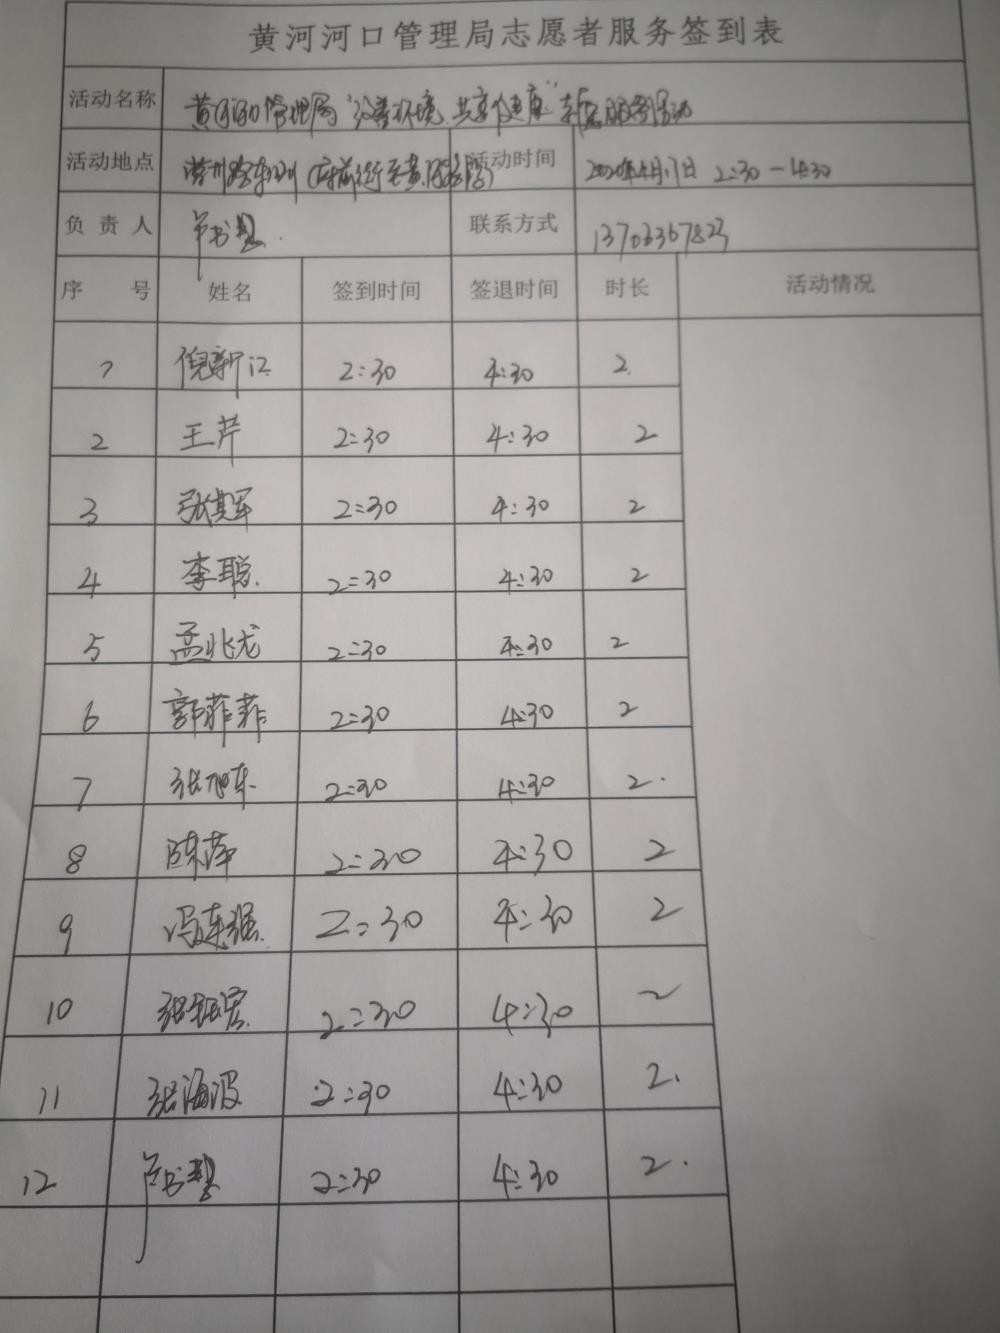 黄河河口管理局志愿者服务签到表
活动名称 黄河河口管理局“改善环境,共享健康”志愿服务活动
活动地点 路东侧(府前街至黄河 活动时间 2:30-4:30
负责人 书 联系方式
序号 姓名 签到时间 签退时间 时长 活动情况
1 倪新江 2:30 4:30 2
2 王芹 2:30 4:30 2
3 张其军 2:30 4:30 2
4 李聪 2:30 4:30 2
5 孟兆龙 2:30 4:30 2
6 郭菲菲 2:30 4:30 2
7 张旭东 2:30 4:30 2
8 陈萍 2:30 4:30 2
9 冯东强 2:30 4:30 2
10 张钰宏 2:30 4:30 2
11 张海波 2:30 4:30 2
12 书 2:30 4:30 2